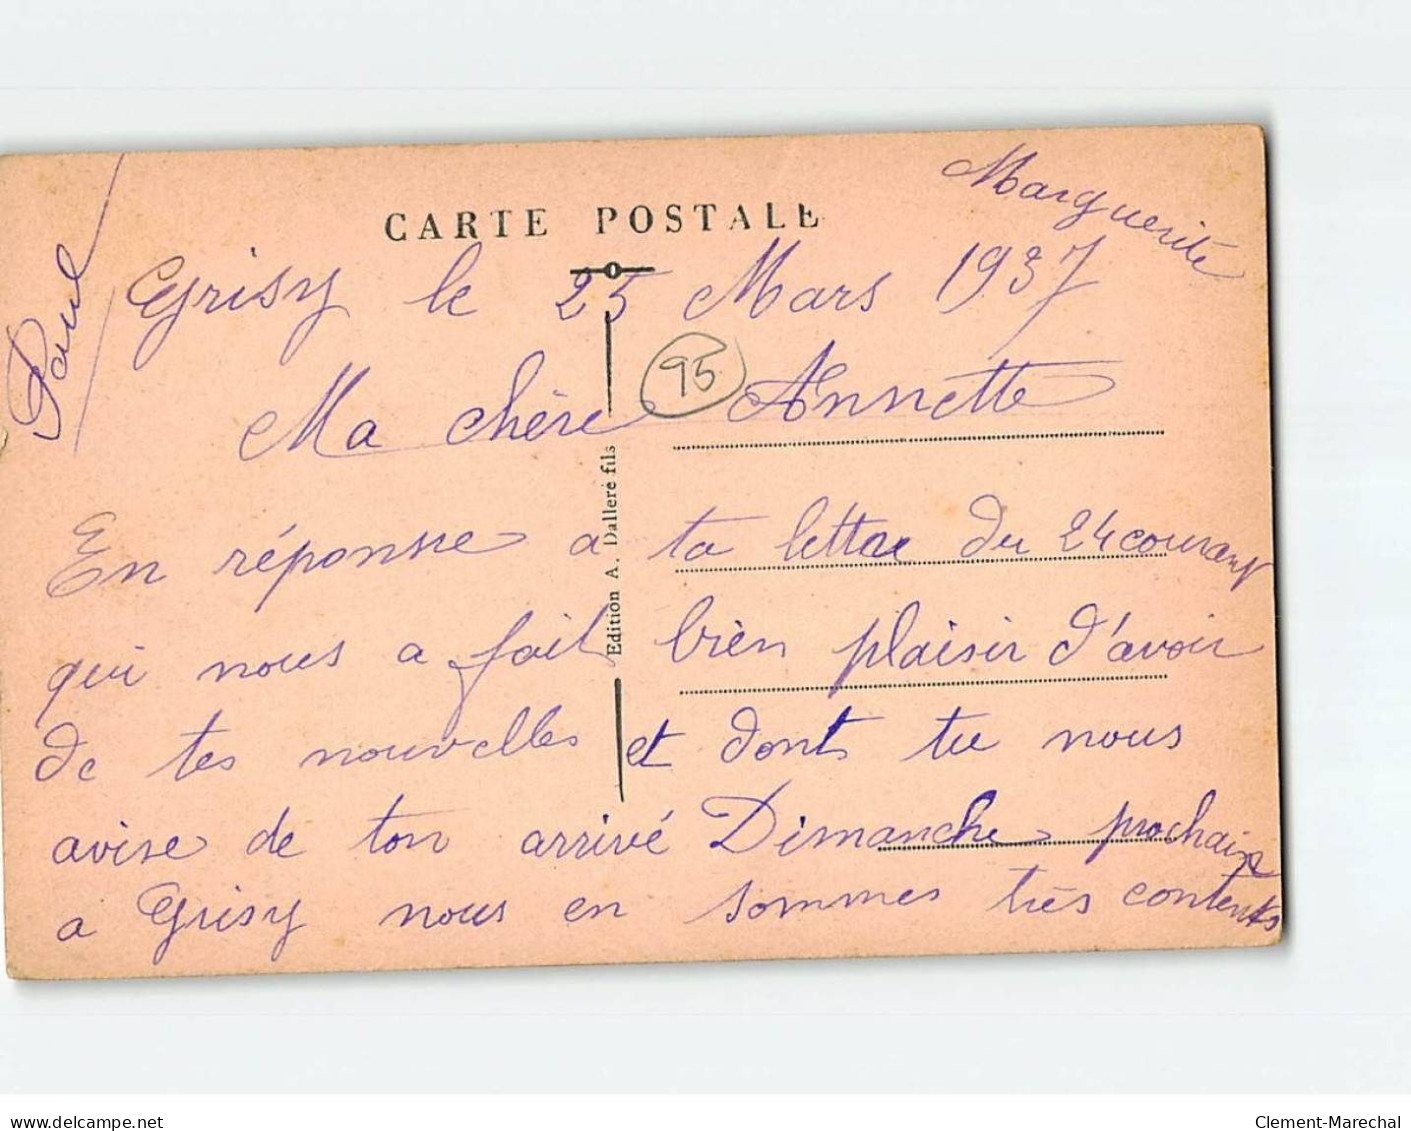 Marguerite
CARTE POSTALE
Paul
Grisy le 25 Mars 1937
95
Ma chère Annette
Edition A. Dallere fils
En réponse a ta lettre du 24 courant
qui nous a fait bien plaisir d'avoir
de tes nouvelles et dont tu nous
avise de ton arrivé Dimanche prochain
a Grisy nous en sommes très contents
delcampe.net
Clement-Marechal